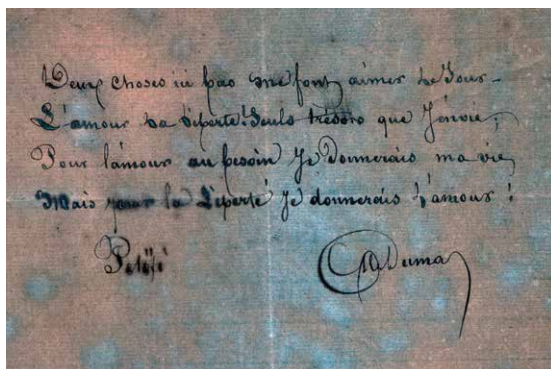 Deux choses ici bas me font aimer le Jour -
L'amour La Liberté! Seuls trésors que J'envie;
Pour l'amour au besoin Je Donnerais ma vie,
Mais pour la Liberté Je donnerais L'amour!
Petöfi
ADumas